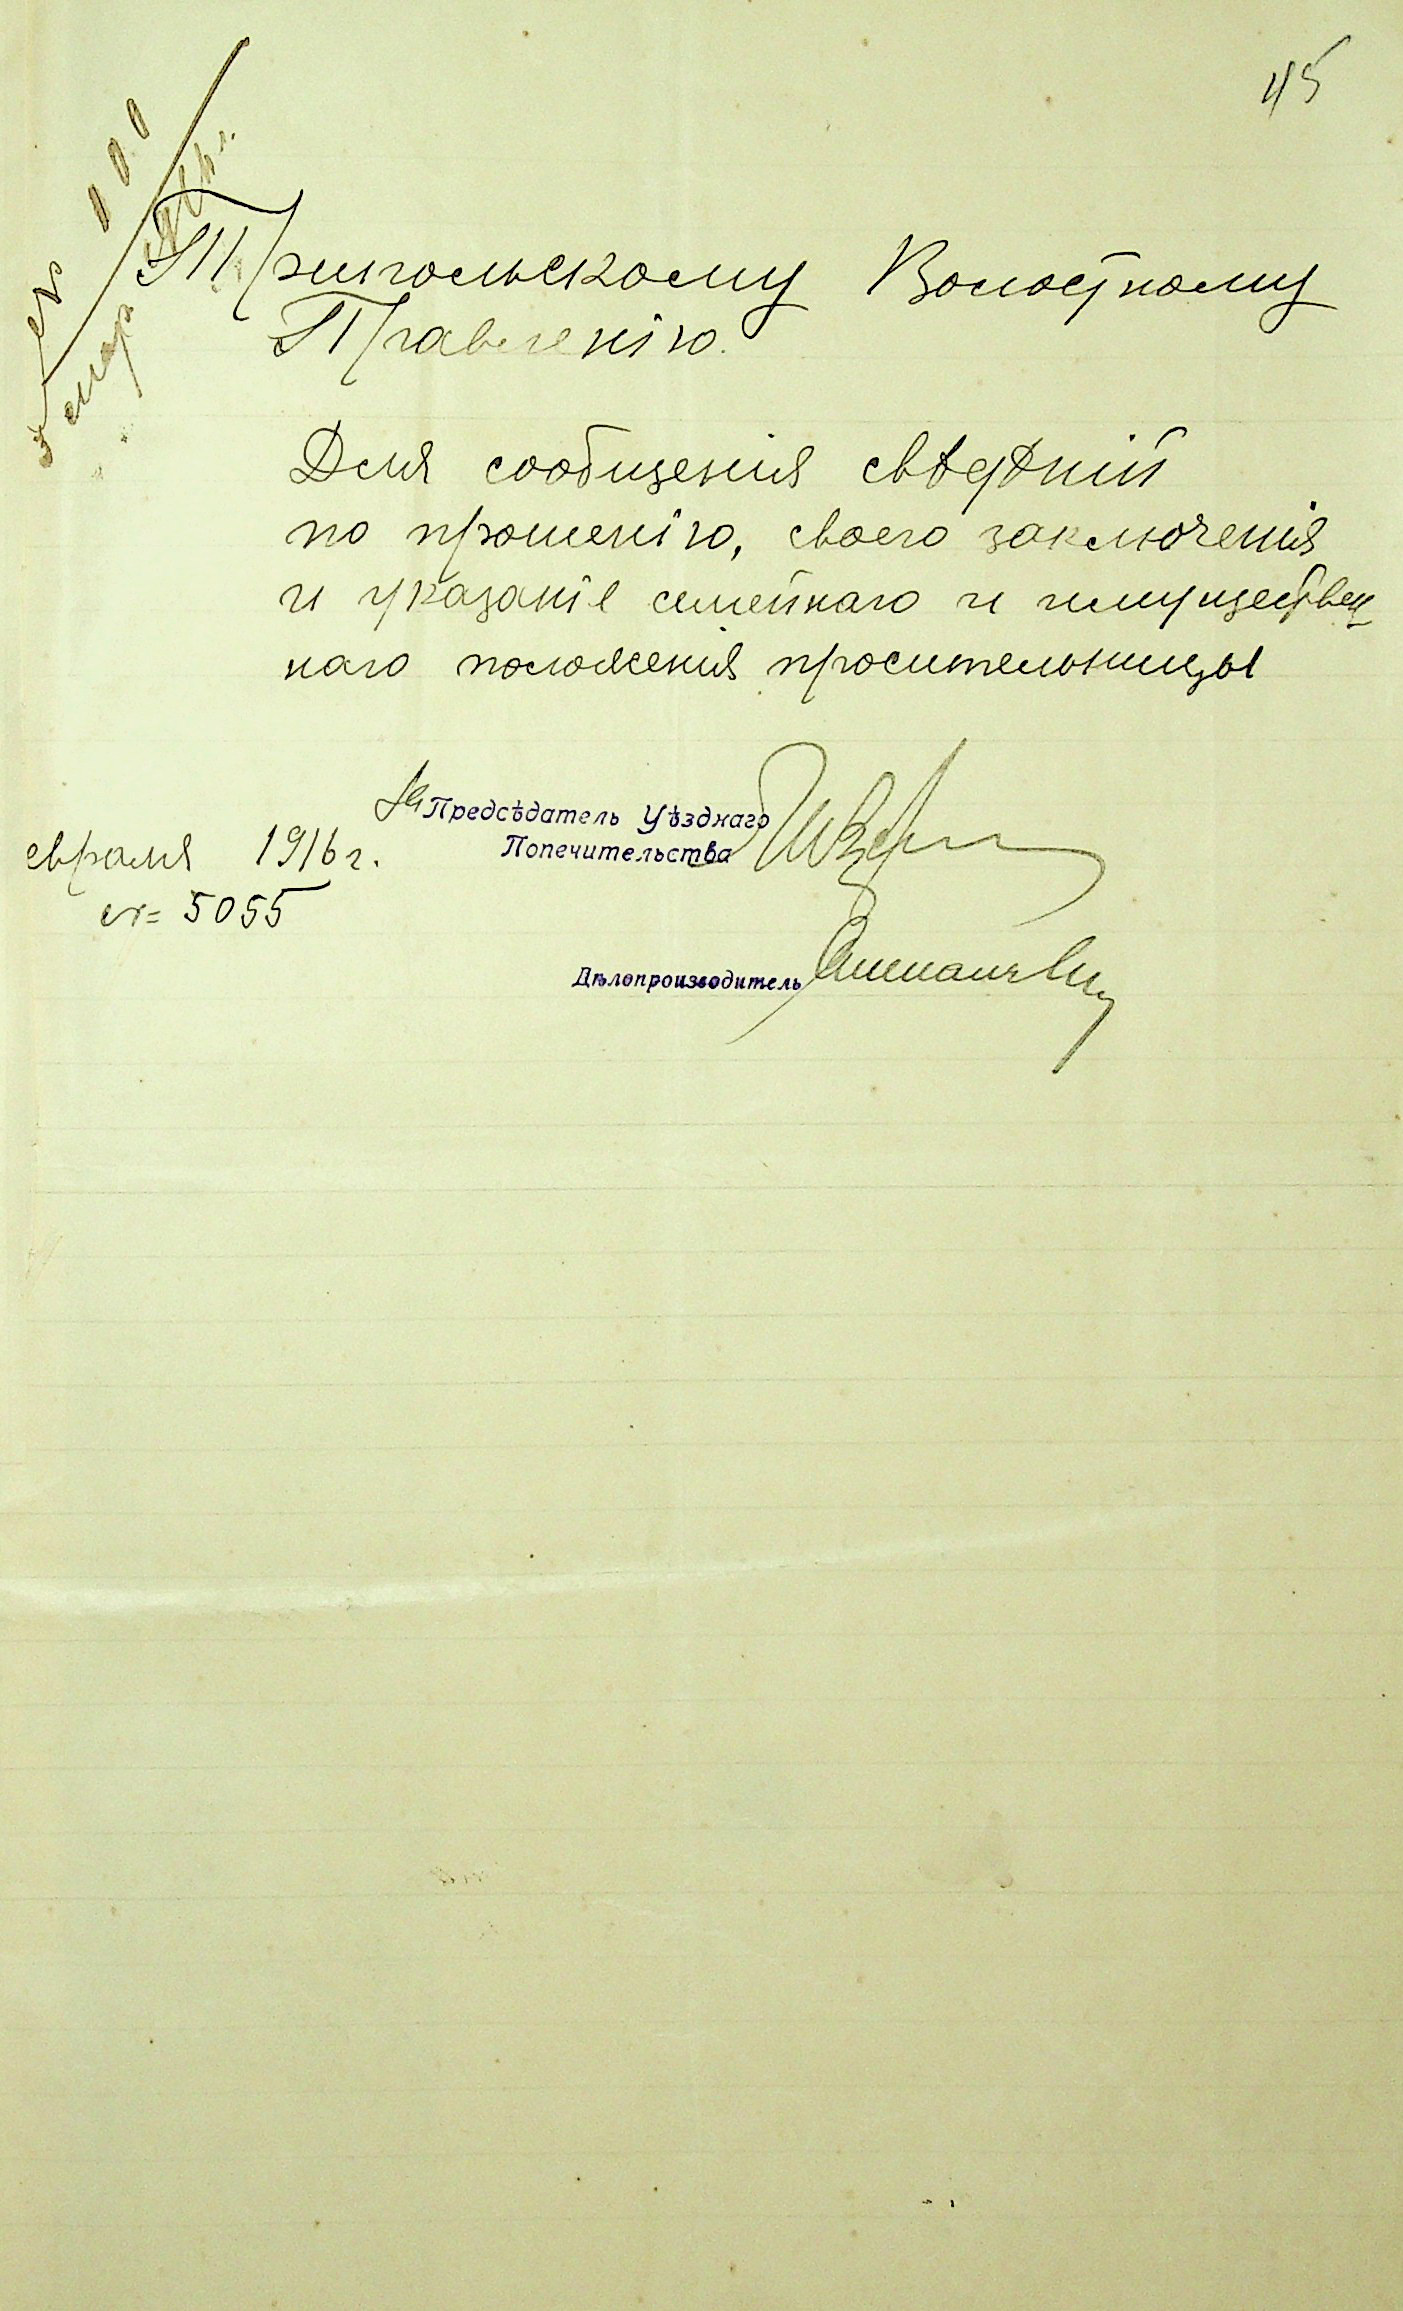 45
Трипольскому Волостному
Правленію.
Для сообщенія свѣдѣній
по прошенію, своего заключенія
и указаніе семейнаго и имуществен
наго положенія просительницы
За Предсѣдатель Уѣзднаго
Попечительства
евраля 1916 г.
№ 5055
Дѣлопроизводитель